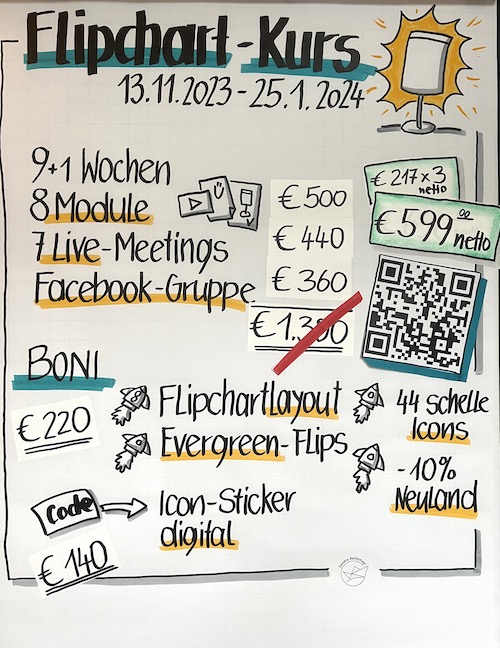 Flipchart-Kurs
13.11.2023 - 25.1.2024
9+1 Wochen
8 Module
7 Live-Meetings
Facebook-Gruppe
€ 500
€ 440
€ 360
€ 1.300
€ 217 x 3
netto
€ 599,00 netto
BONI
€ 220
Flipchartlayout
Evergreen-Flips
44 schelle
Icons
- 10%
Neuland
Code
Icon-Sticker
digital
€ 140